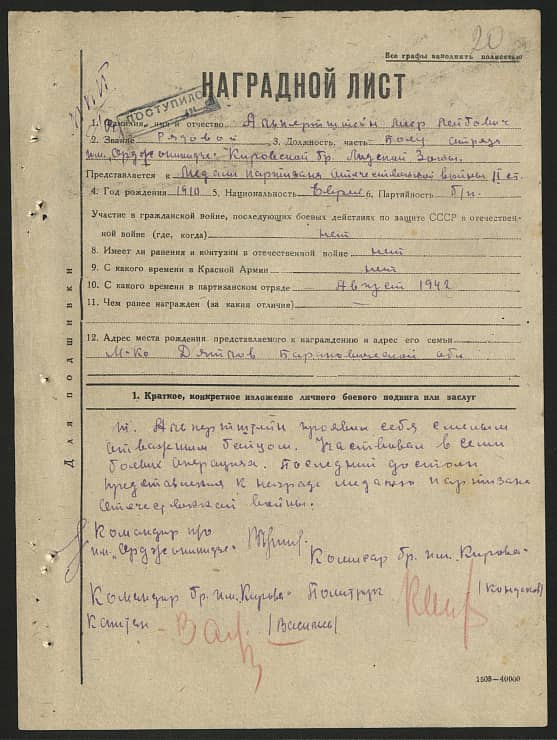 20
Все графы заполнять полностью
ПОСТУПИЛО
НАГРАДНОЙ ЛИСТ
1. Фамилия, имя и отчество Лейбович
2. Звание Рядовой 3. Должность, часть отряда
им. „Орджоникидзе“ Кировской бр. Лидской Зоны.
Представляется к Медали Партизана Отечественной войны II ст.
4. Год рождения 1910 5. Национальность Еврей 6. Партийность б/п.
Участие в гражданской войне, последующих боевых действиях по защите СССР в отечествен-
ной войне (где, когда) нет
8. Имеет ли ранения и контузии в отечественной войне нет
9. С какого времени в Красной Армии нет
10. С какого времени в партизанском отряде Август 1942
11. Чем ранее награжден (за какия отличия) —
12. Адрес места рождения представляемого к награждению и адрес его семьи
М-ко Дятлов Барановической обл.
Для подшивки
1. Краткое, конкретное изложение личного боевого подвига или заслуг
т. проявил себя смелым
отважным бойцом. Участвовал в семи
боевых операциях. Последний достоин
представления к награде медалью партизана
Отечественной войны.
Командир п/о
им. „Орджоникидзе“
Комисар бр. им. „Кирова“
Командир бр. им. „Кирова“ Политрук
Капитан /Васильев/
150В—40000